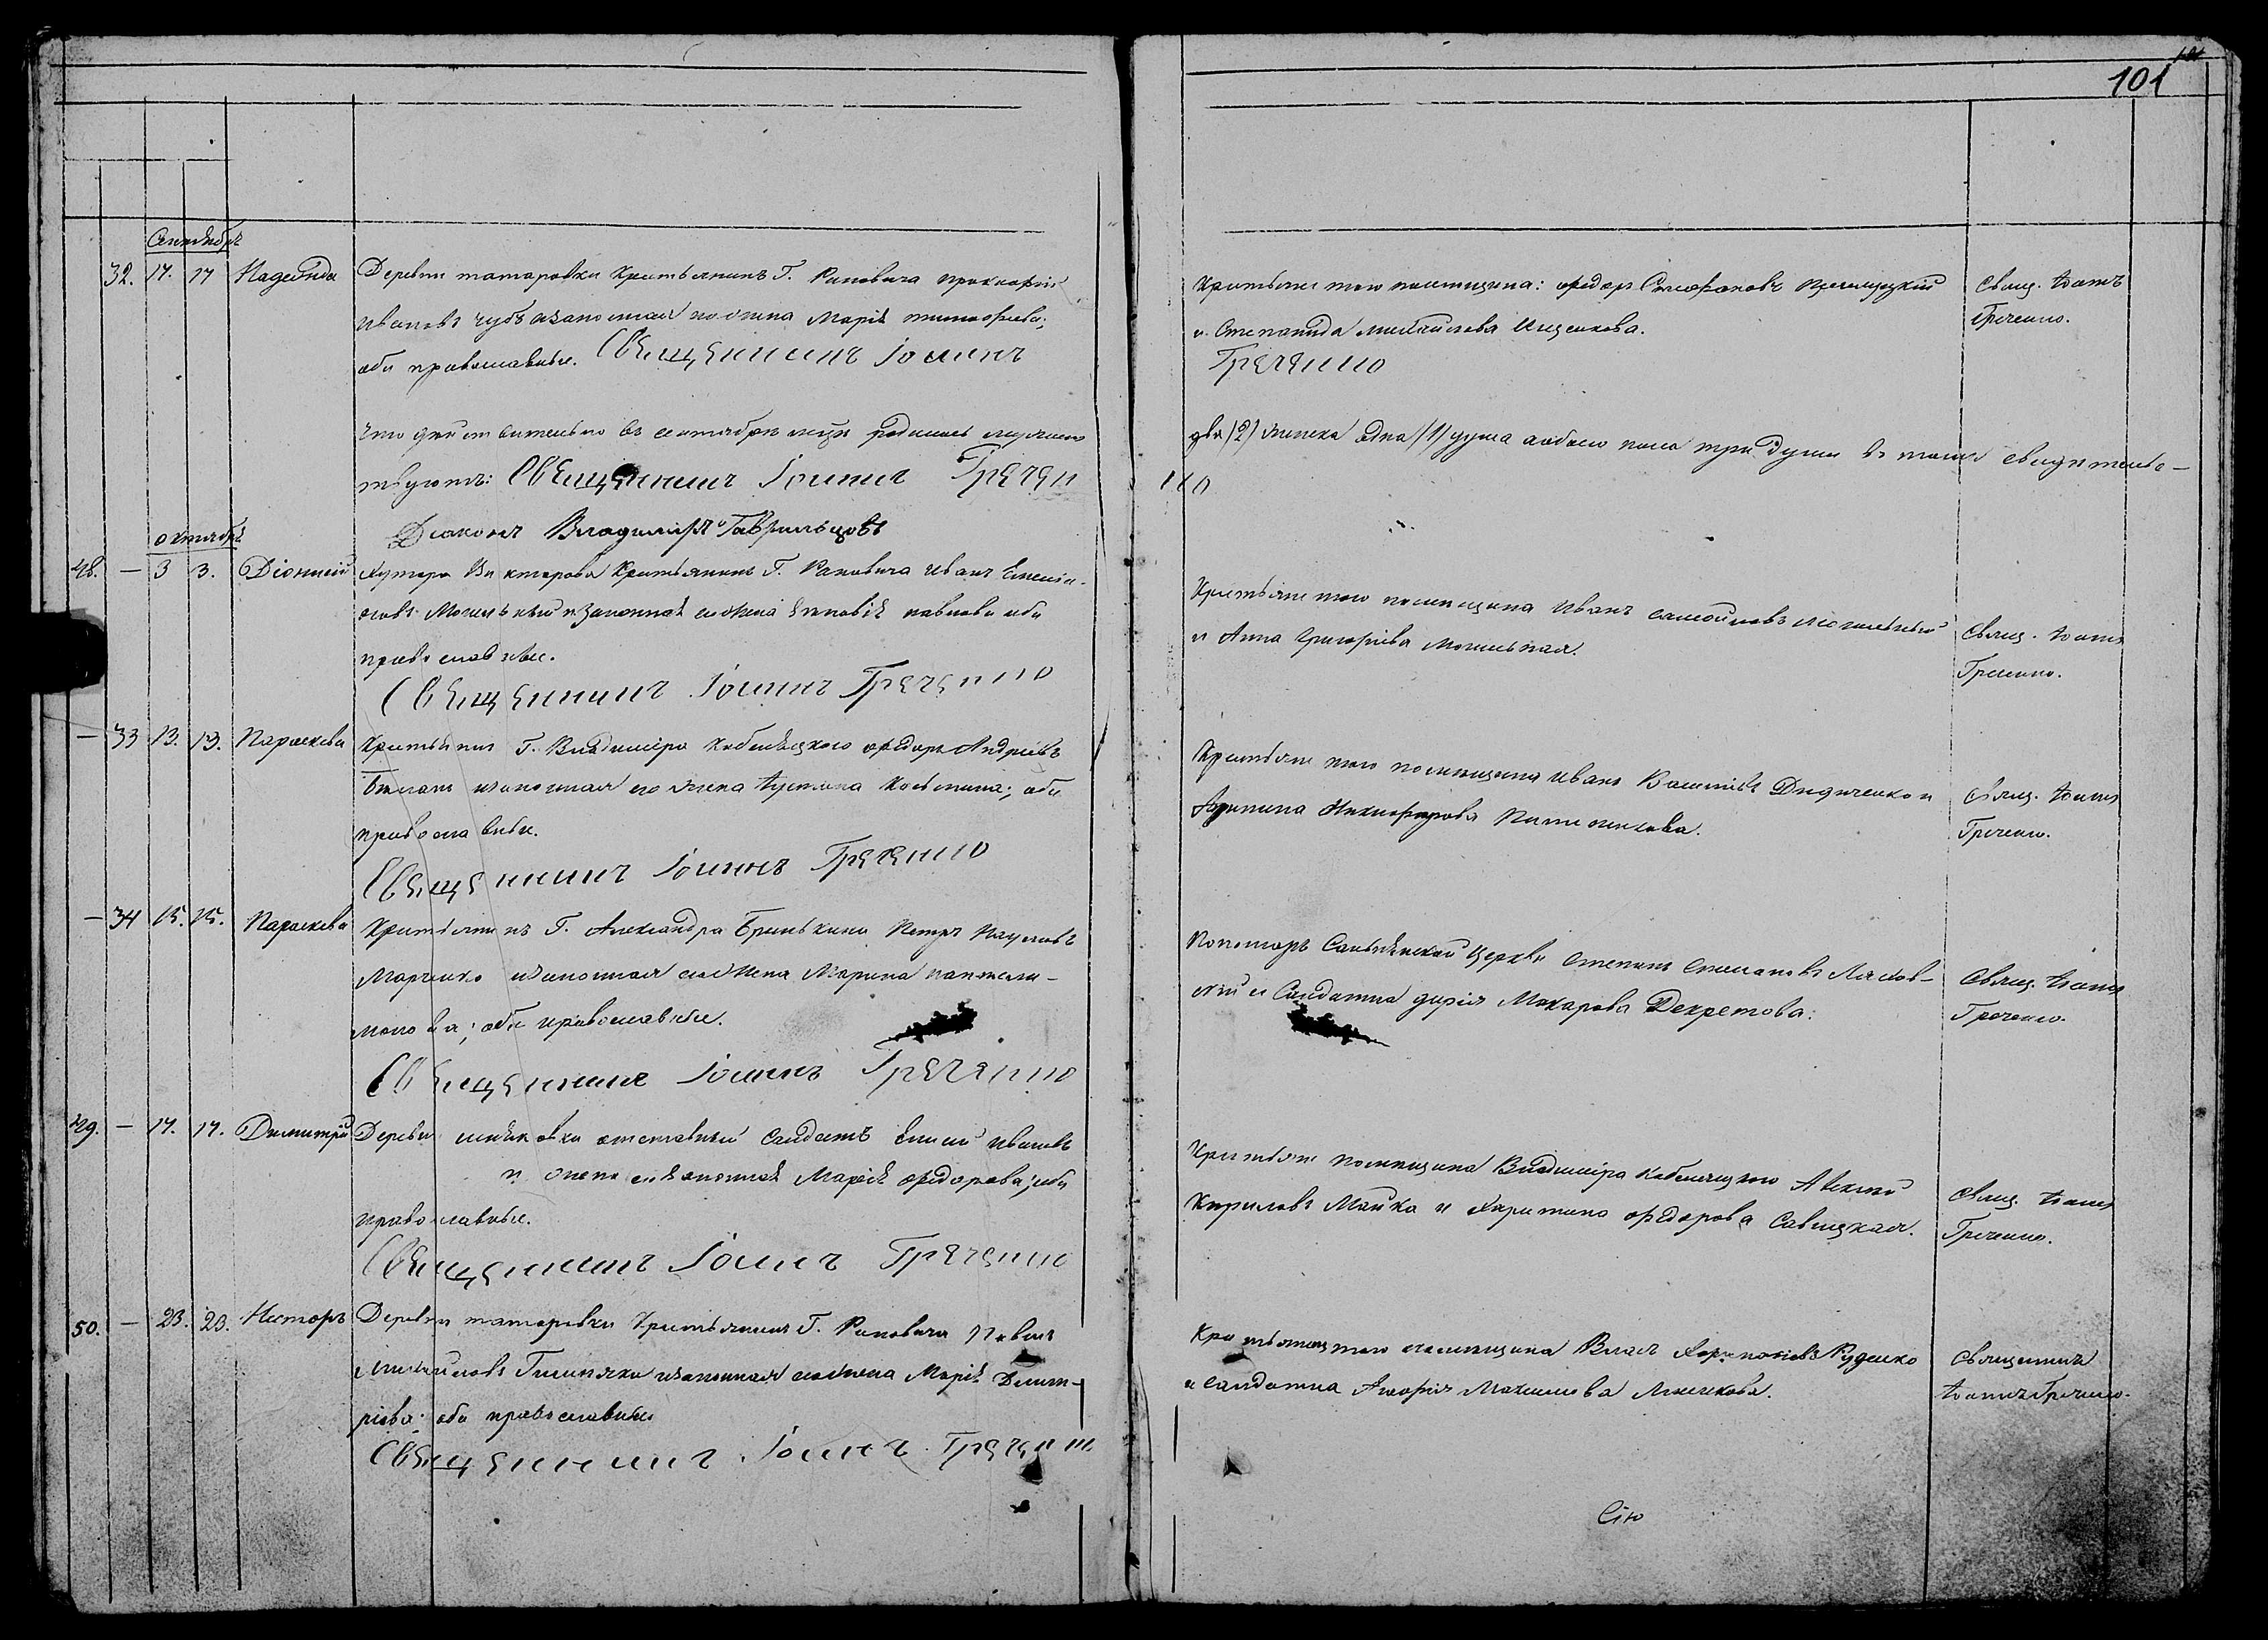 101
Сентябрь
32. 17. 17 Надежда Деревни татаровки Крестьянинъ Г. Раковича Прокофій
Ивановъ Чубъ изаконная его жена Марія тимофеева;
оба православные. Священникъ Іоаннъ
Крестьяне того помещика: федоръ Стефановъ
и Степанида михайлова Ищенкова.
Гречино
Свящ. Іоаннъ
Гречино.
Что действительно въ сентябрѣ мцѣ родилось мужеска
два /2/ женска одна /1/ душа а обоего пола три души въ томъ свидѣтельс-
твуютъ: Священникъ Іоаннъ Гречин
но
Діаконъ Владиміръ Гаврильцовъ
октябрь
48. — 3 3. Діонисій Хутора Викторова Крестьянинъ Г. Раковича Иванъ
Могильный изаконная его жена Зиновія павлова оба
православные.
Священникъ Іоаннъ Гречино
Крестьяне того помещика Иванъ самойловъ могильный
и Анна Григорьева Могильная.
Свящ. Іоаннъ
Гречино.
— 33 13. 13. Параскева Крестьянинъ Г. Владиміра Кобеляцкого федоръ Андреевъ
изаконная его жена Іустина Косьмина; оба
православные.
Священникъ Іоаннъ Гречино
Крестьяне того помещика Иванъ Васильевъ Дидиченко и
Никифорова
Свящ. Іоаннъ
Гречино.
— 34 15. 15. Параскева Крестьянинъ Г. Александра Бринькина Петръ Наумовъ
Марченко изаконная его жена Марина пантели-
монова; оба православные.
Священникъ Іоаннъ Гречино
Пономарь Церкви степанъ степановъ Лясков-
скій и Солдатка дарія Макарова Декретова:
Свящ. Іоаннъ
Гречино.
49. — 17. 17. Димитрій Деревни отставный Солдатъ Иванов
и жена его законная Марія федорова; оба
православные.
Священникъ Іоаннъ Гречино
Крестьяне помещика Владиміра Кобеляцкого Алексій
Кириловъ Майко и Харитина федорова Савицкая.
Свящ. Іоаннъ
Гречино.
50. — 23. 23. Несторъ Деревни татаровки Крестьянинъ Г. Раковича Павелъ
михайловъ изаконная его жена Марія Димит-
ріева: оба православные
Священникъ Іоаннъ Гречино
Крестьянинъ того помещика Власъ Руденко
и солдатка Агафія Максимова
Священникъ
Іоаннъ Гречино.
Сію